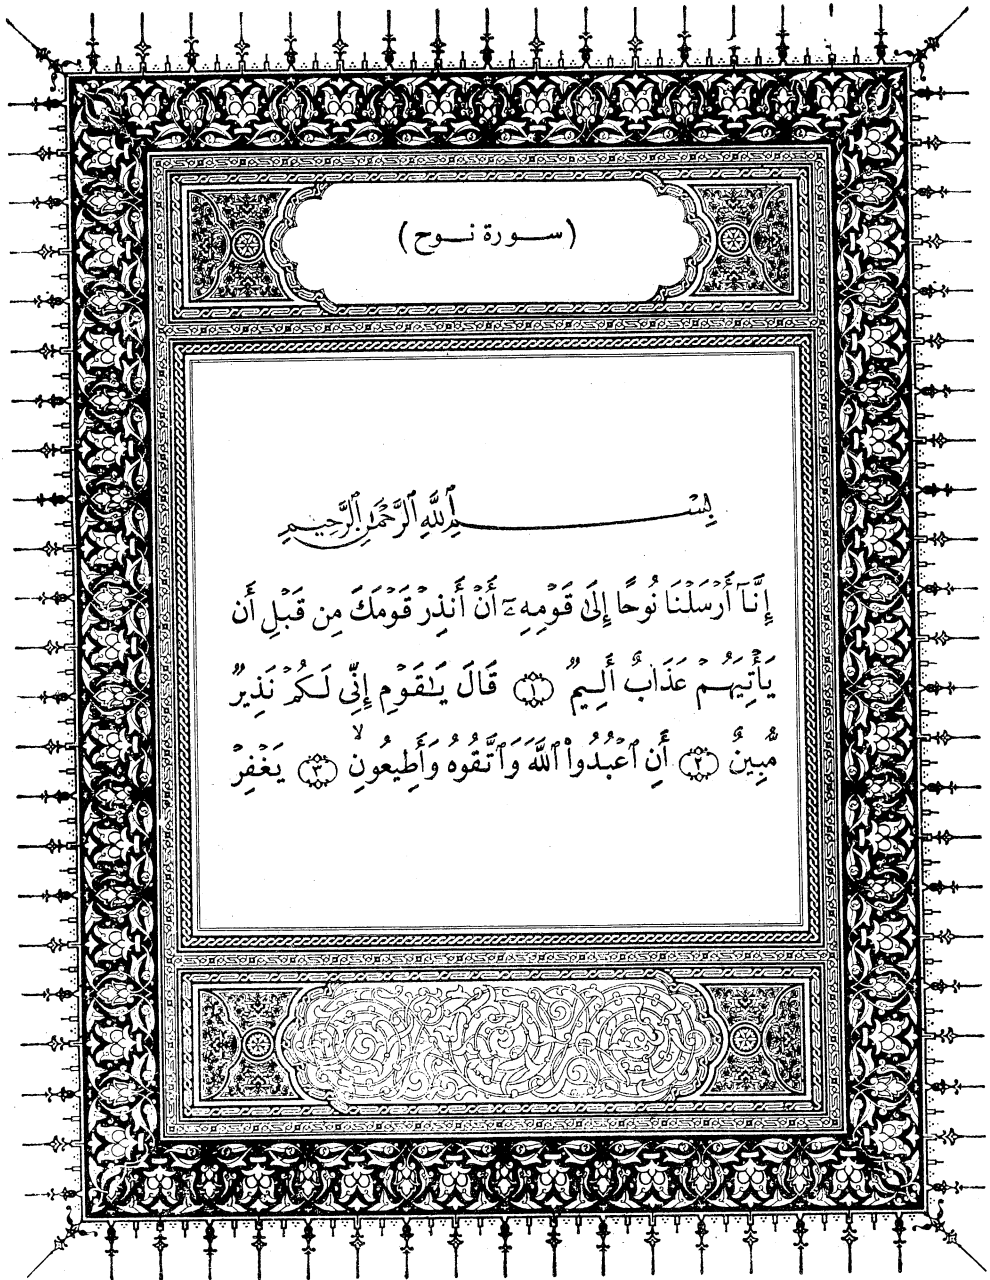 (سورة نوح)
بِسْمِ ٱللَّهِ ٱلرَّحْمَٰنِ ٱلرَّحِيمِ
إِنَّآ أَرْسَلْنَا نُوحًا إِلَىٰ قَوْمِهِۦٓ أَنْ أَنذِرْ قَوْمَكَ مِن قَبْلِ أَن
يَأْتِيَهُمْ عَذَابٌ أَلِيمٌ ﴿١﴾ قَالَ يَٰقَوْمِ إِنِّى لَكُمْ نَذِيرٌ
مُّبِينٌ ﴿٢﴾ أَنِ ٱعْبُدُوا۟ ٱللَّهَ وَٱتَّقُوهُ وَأَطِيعُونِ ۙ ﴿٣﴾ يَغْفِرْ